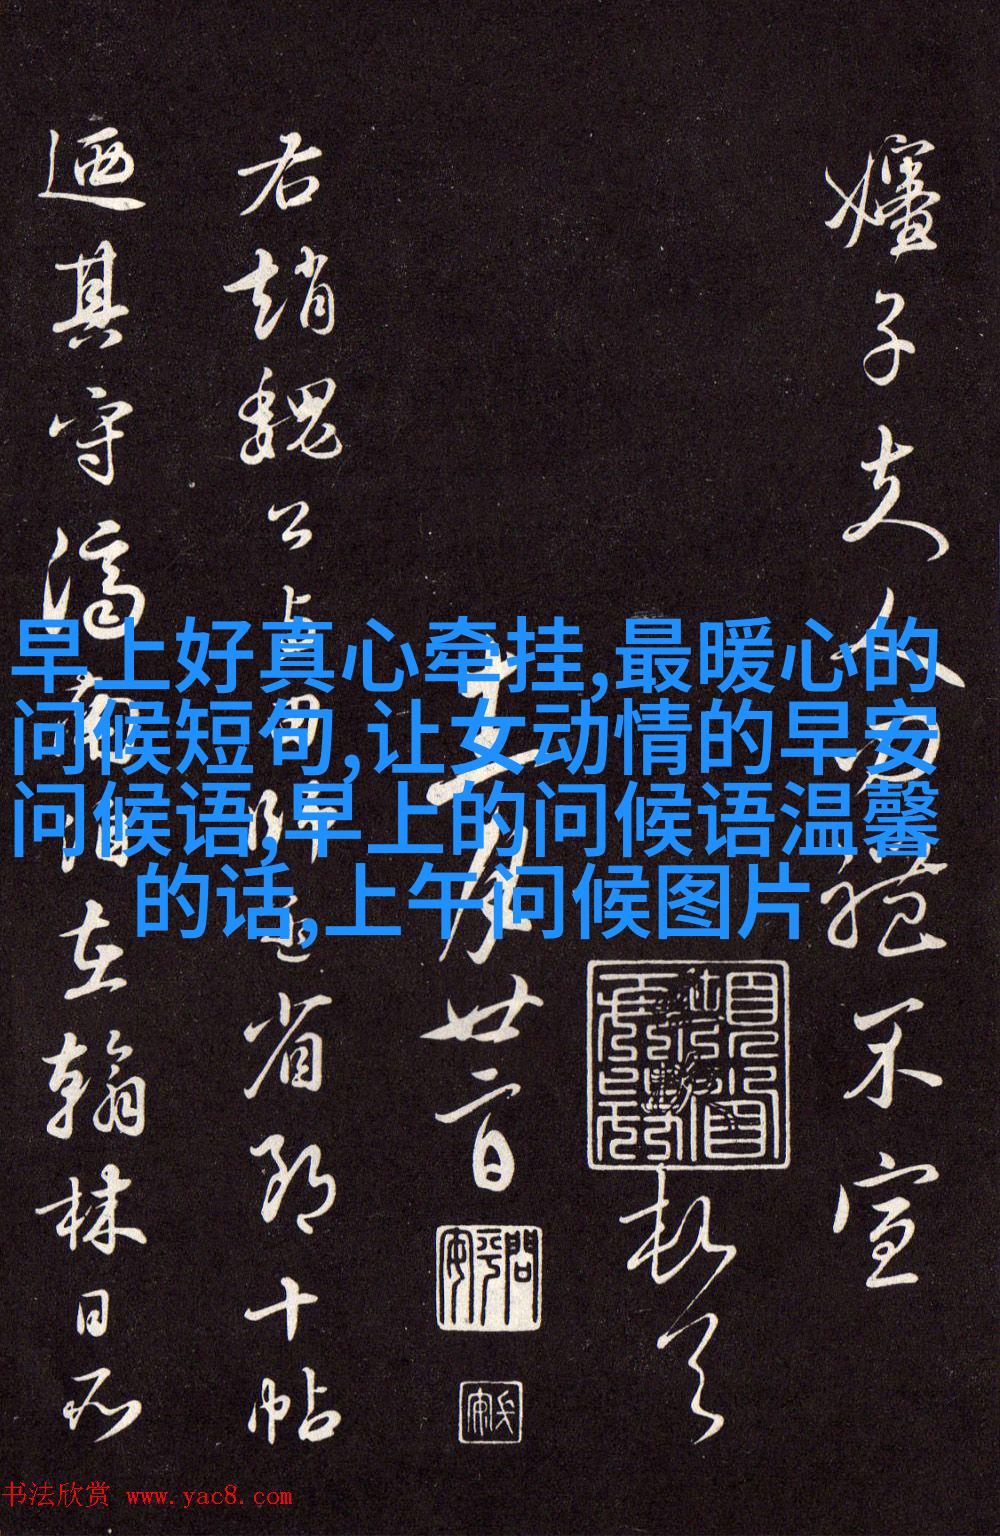 早上好真心牵挂,最暖心的
问候短句,让女动情的早安
问候语,早上的问候语温馨
的话,上午问候图片
嬸子夫人
不宣
頓首
月廿二日
右趙魏公與
省郎十帖
廼其守濟南
在翰林日所
书法欣赏 www.yac8.com